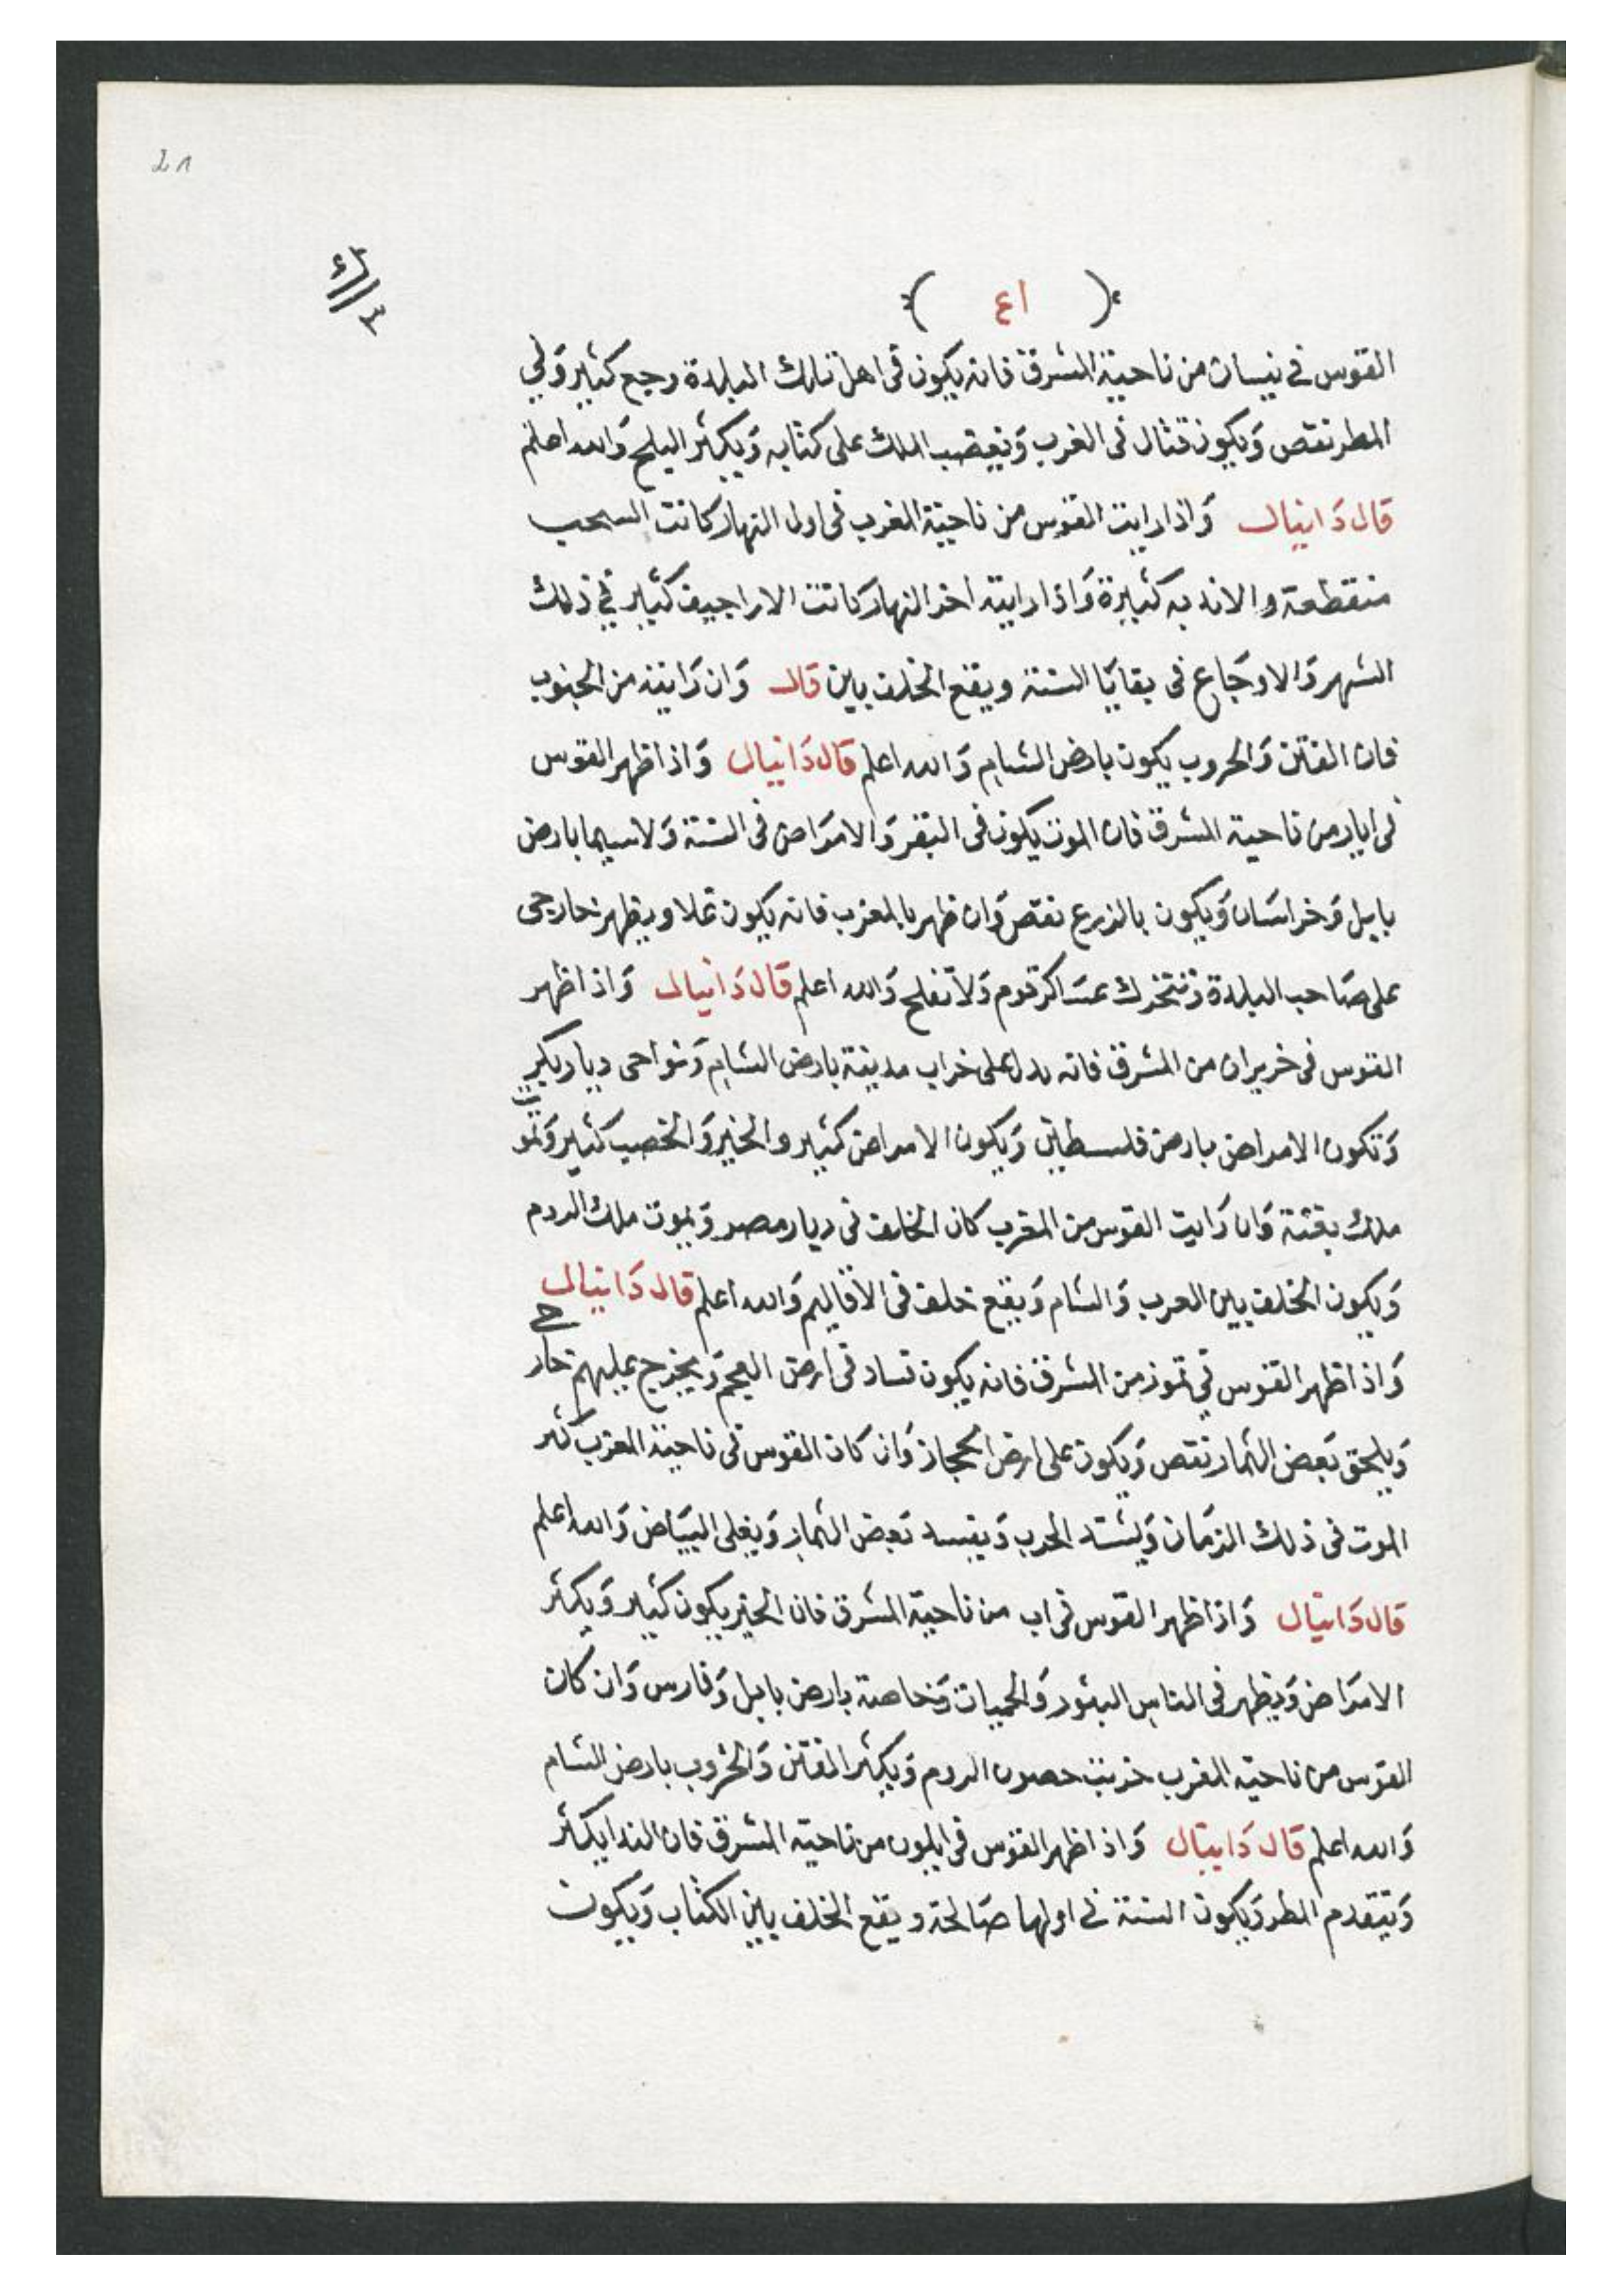 21
( ٤١ )
القوس في نيسان من ناحية المشرق فانه يكون فى اهل تلك البلدة وجع كثير وفي
المطر نقص ويكون قتال فى الغرب ويغضب الملك على كتابه ويكثر البلح والله اعلم
قال دانيال واذا رايت القوس من ناحية الغرب فى اول النهار كانت السحب
منقطعة والانديه كثيرة واذا رايته اخر النهار كانت الاراجيف كثير في ذلك
الشهر والاوجاع فى بقايا السنة ويقع الخلف بين قال وان رايته من الجنوب
فان الفتن والحروب يكون بارض الشام والله اعلم قال دانيال واذا ظهر القوس
فى ايار من ناحية المشرق فان الموت يكون فى البقر والامراض فى السنة ولاسيما بارض
بابل وخراسان ويكون بالزرع نقص وان ظهر بالمغرب فانه يكون غلا ويظهر خارجى
على صاحب البلدة وتتحرك عساكر قوم ولا تفلح والله اعلم قال دانيال واذا ظهر
القوس فى خريران من المشرق فانه يدل على خراب مدينة بارض الشام ونواحى ديار بكر
وتكون الامراض بارض فلسطين ويكون الامراض كثير والخير والخصب كثير ويموت
ملك بغتة وان رايت القوس من المغرب كان الخلف فى ديار مصر ويموت ملك الروم
ويكون الخلف بين العرب والشام ويقع خلف فى الاقاليم والله اعلم قال دانيال
واذا ظهر القوس في تموز من المشرق فانه يكون فساد فى ارض العجم ويخرج عليهم خارج
ويلحق بعض الثمار نقص ويكون على ارض الحجاز وان كان القوس فى ناحية المغرب كثر
الموت فى ذلك الزمان ويشتد الحرب ويفسد بعض الثمار ويغلى البياض والله اعلم
قال دانيال واذا ظهر القوس فى اب من ناحية المشرق فان الخير يكون كثير ويكثر
الامراض ويظهر فى الناس البثور والحميات وخاصة بارض بابل وفارس وان كان
القوس من ناحية المغرب خربت حصون الروم ويكثر الفتن والحروب بارض الشام
والله اعلم قال دانيال واذا ظهر القوس فى ايلون من ناحية المشرق فان الندا يكثر
ويتقدم المطر ويكون السنة في اولها صالحة ويقع الخلف بين الكتاب ويكون